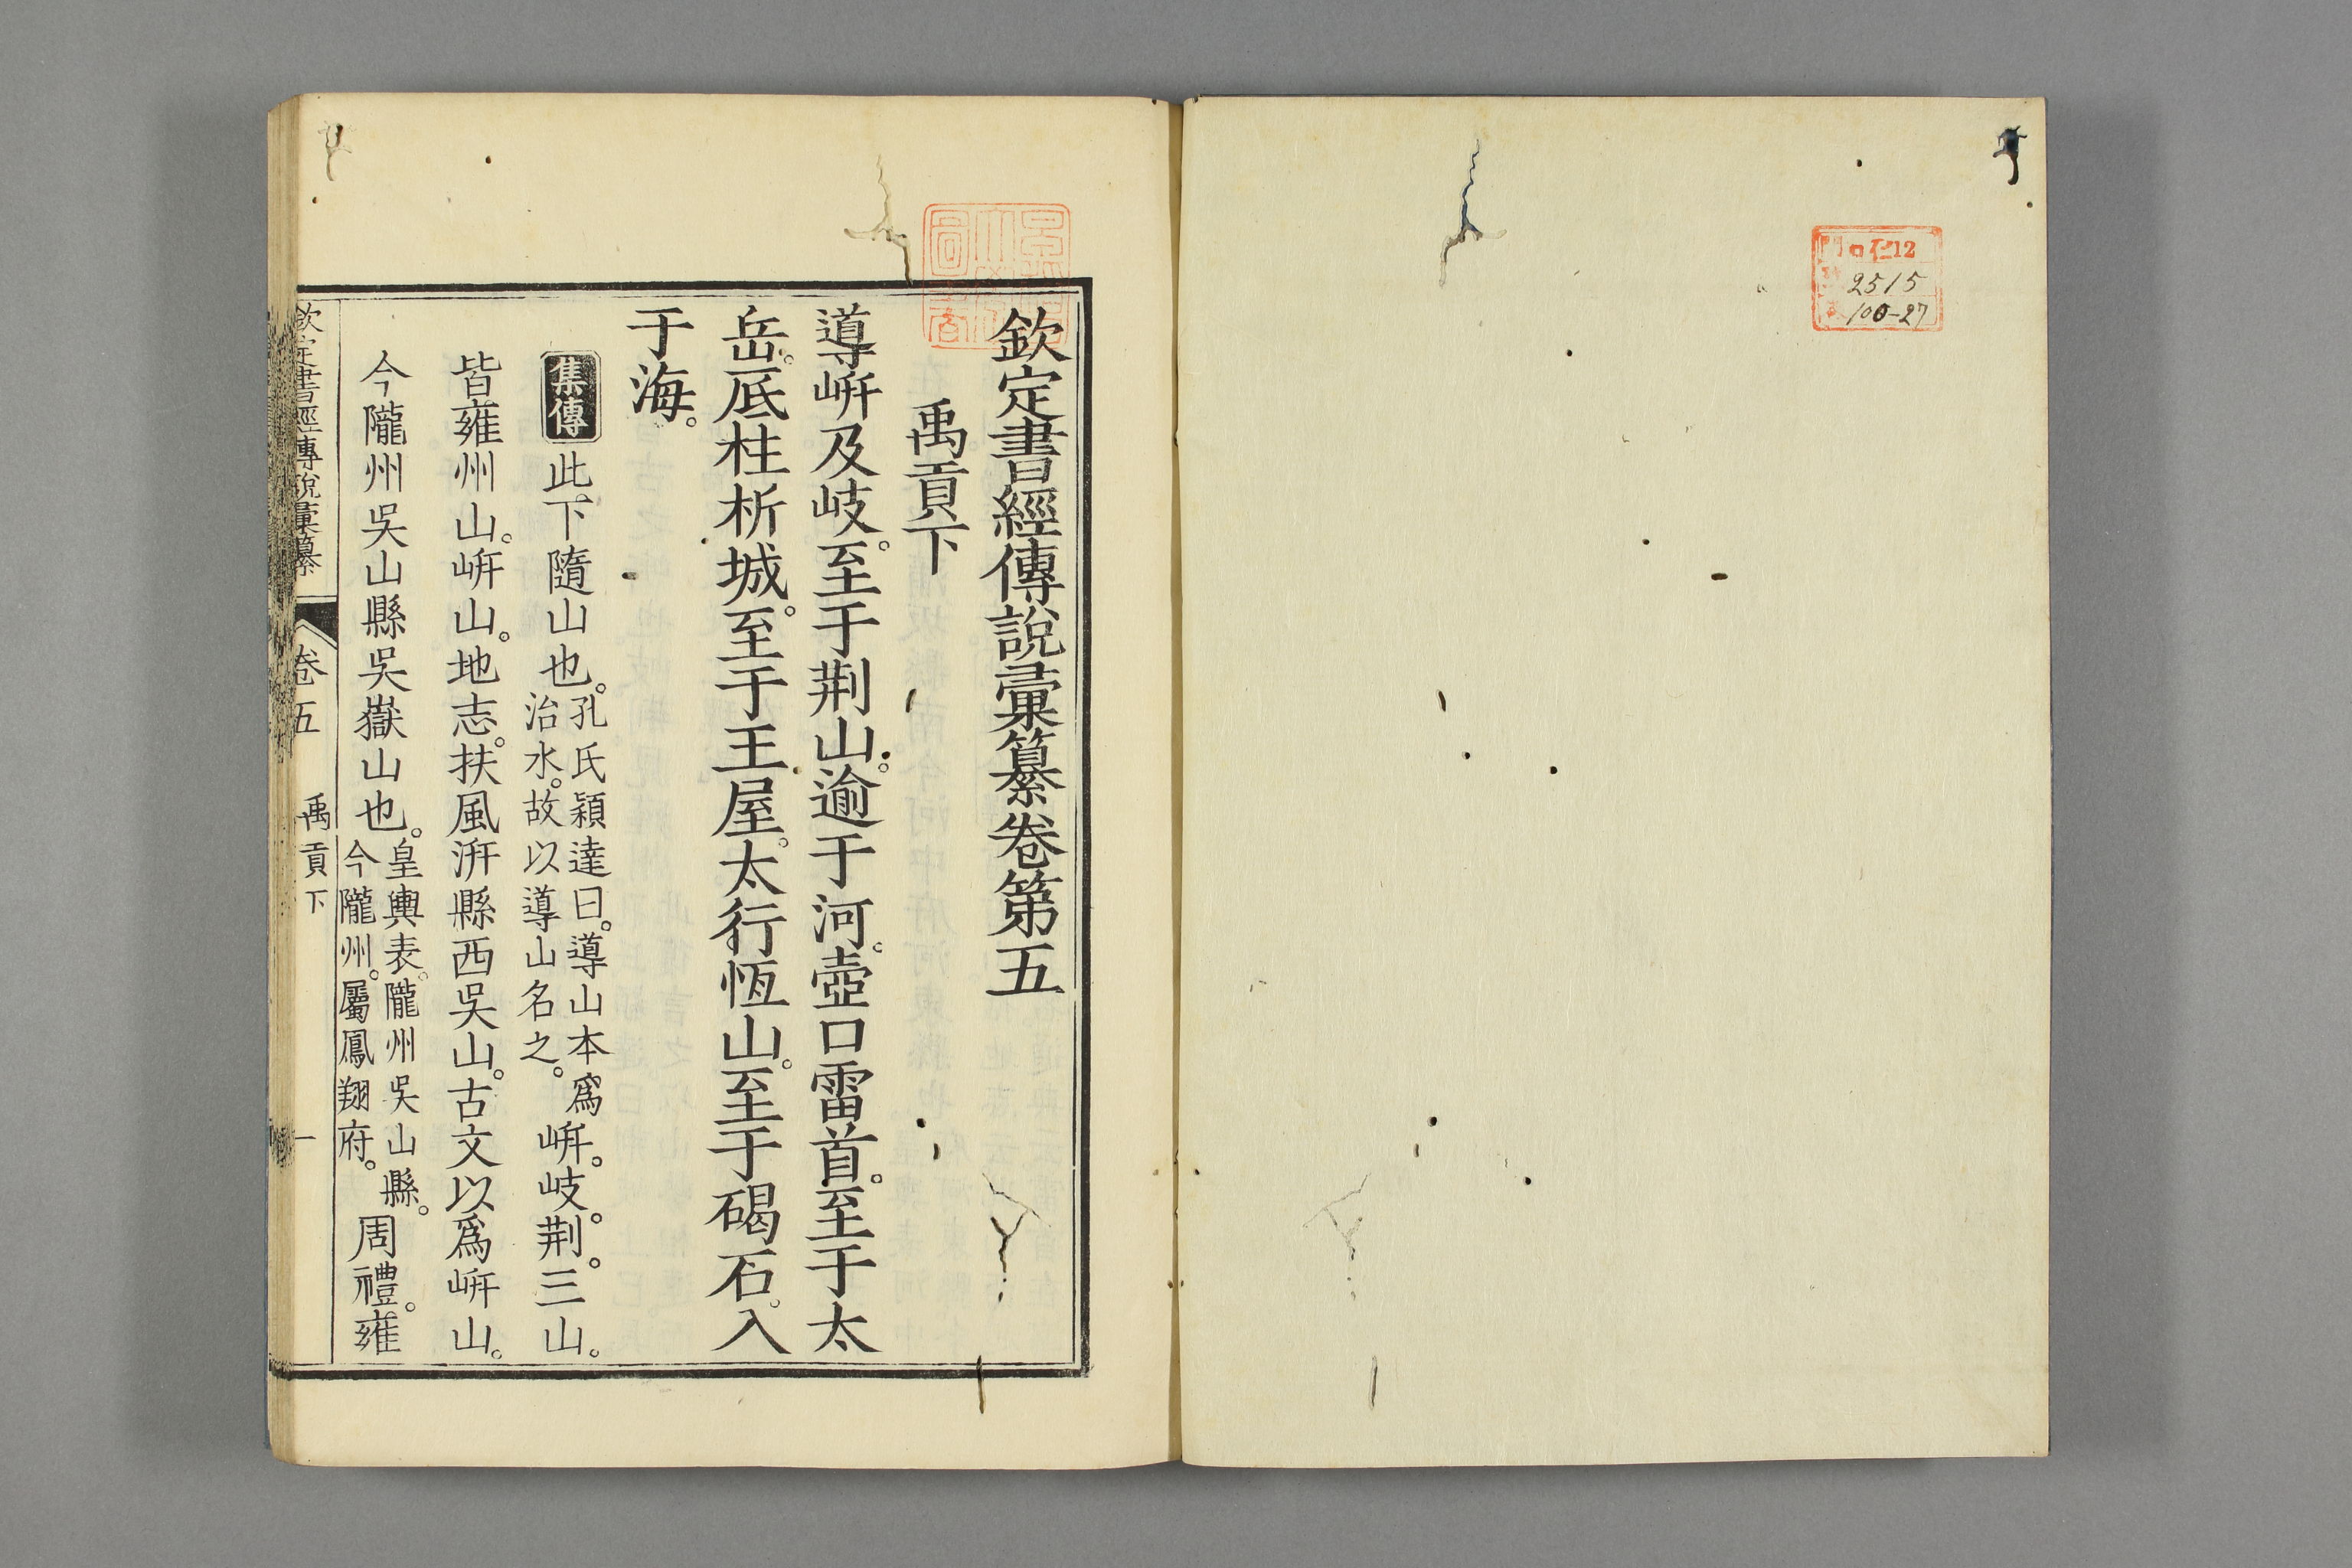 仁12
2515
100-27
欽定書經傳說彙纂卷第五
禹貢下
導岍及岐。至于荆山。逾于河。壺口雷首。至于太
岳。底柱析城。至于王屋。太行恆山。至于碣石。入
于海。
集傳 此下隨山也。孔氏穎達曰。導山本爲治水。故以導山名之。岍。岐。荆。三山。
皆雍州山。岍山。地志。扶風汧縣西吳山。古文以爲岍山。
今隴州吳山縣吳嶽山也。皇輿表。隴州吳山縣。今隴州。屬鳳翔府。周禮。雍
欽定書經傳說彙纂 卷五 禹貢下 一